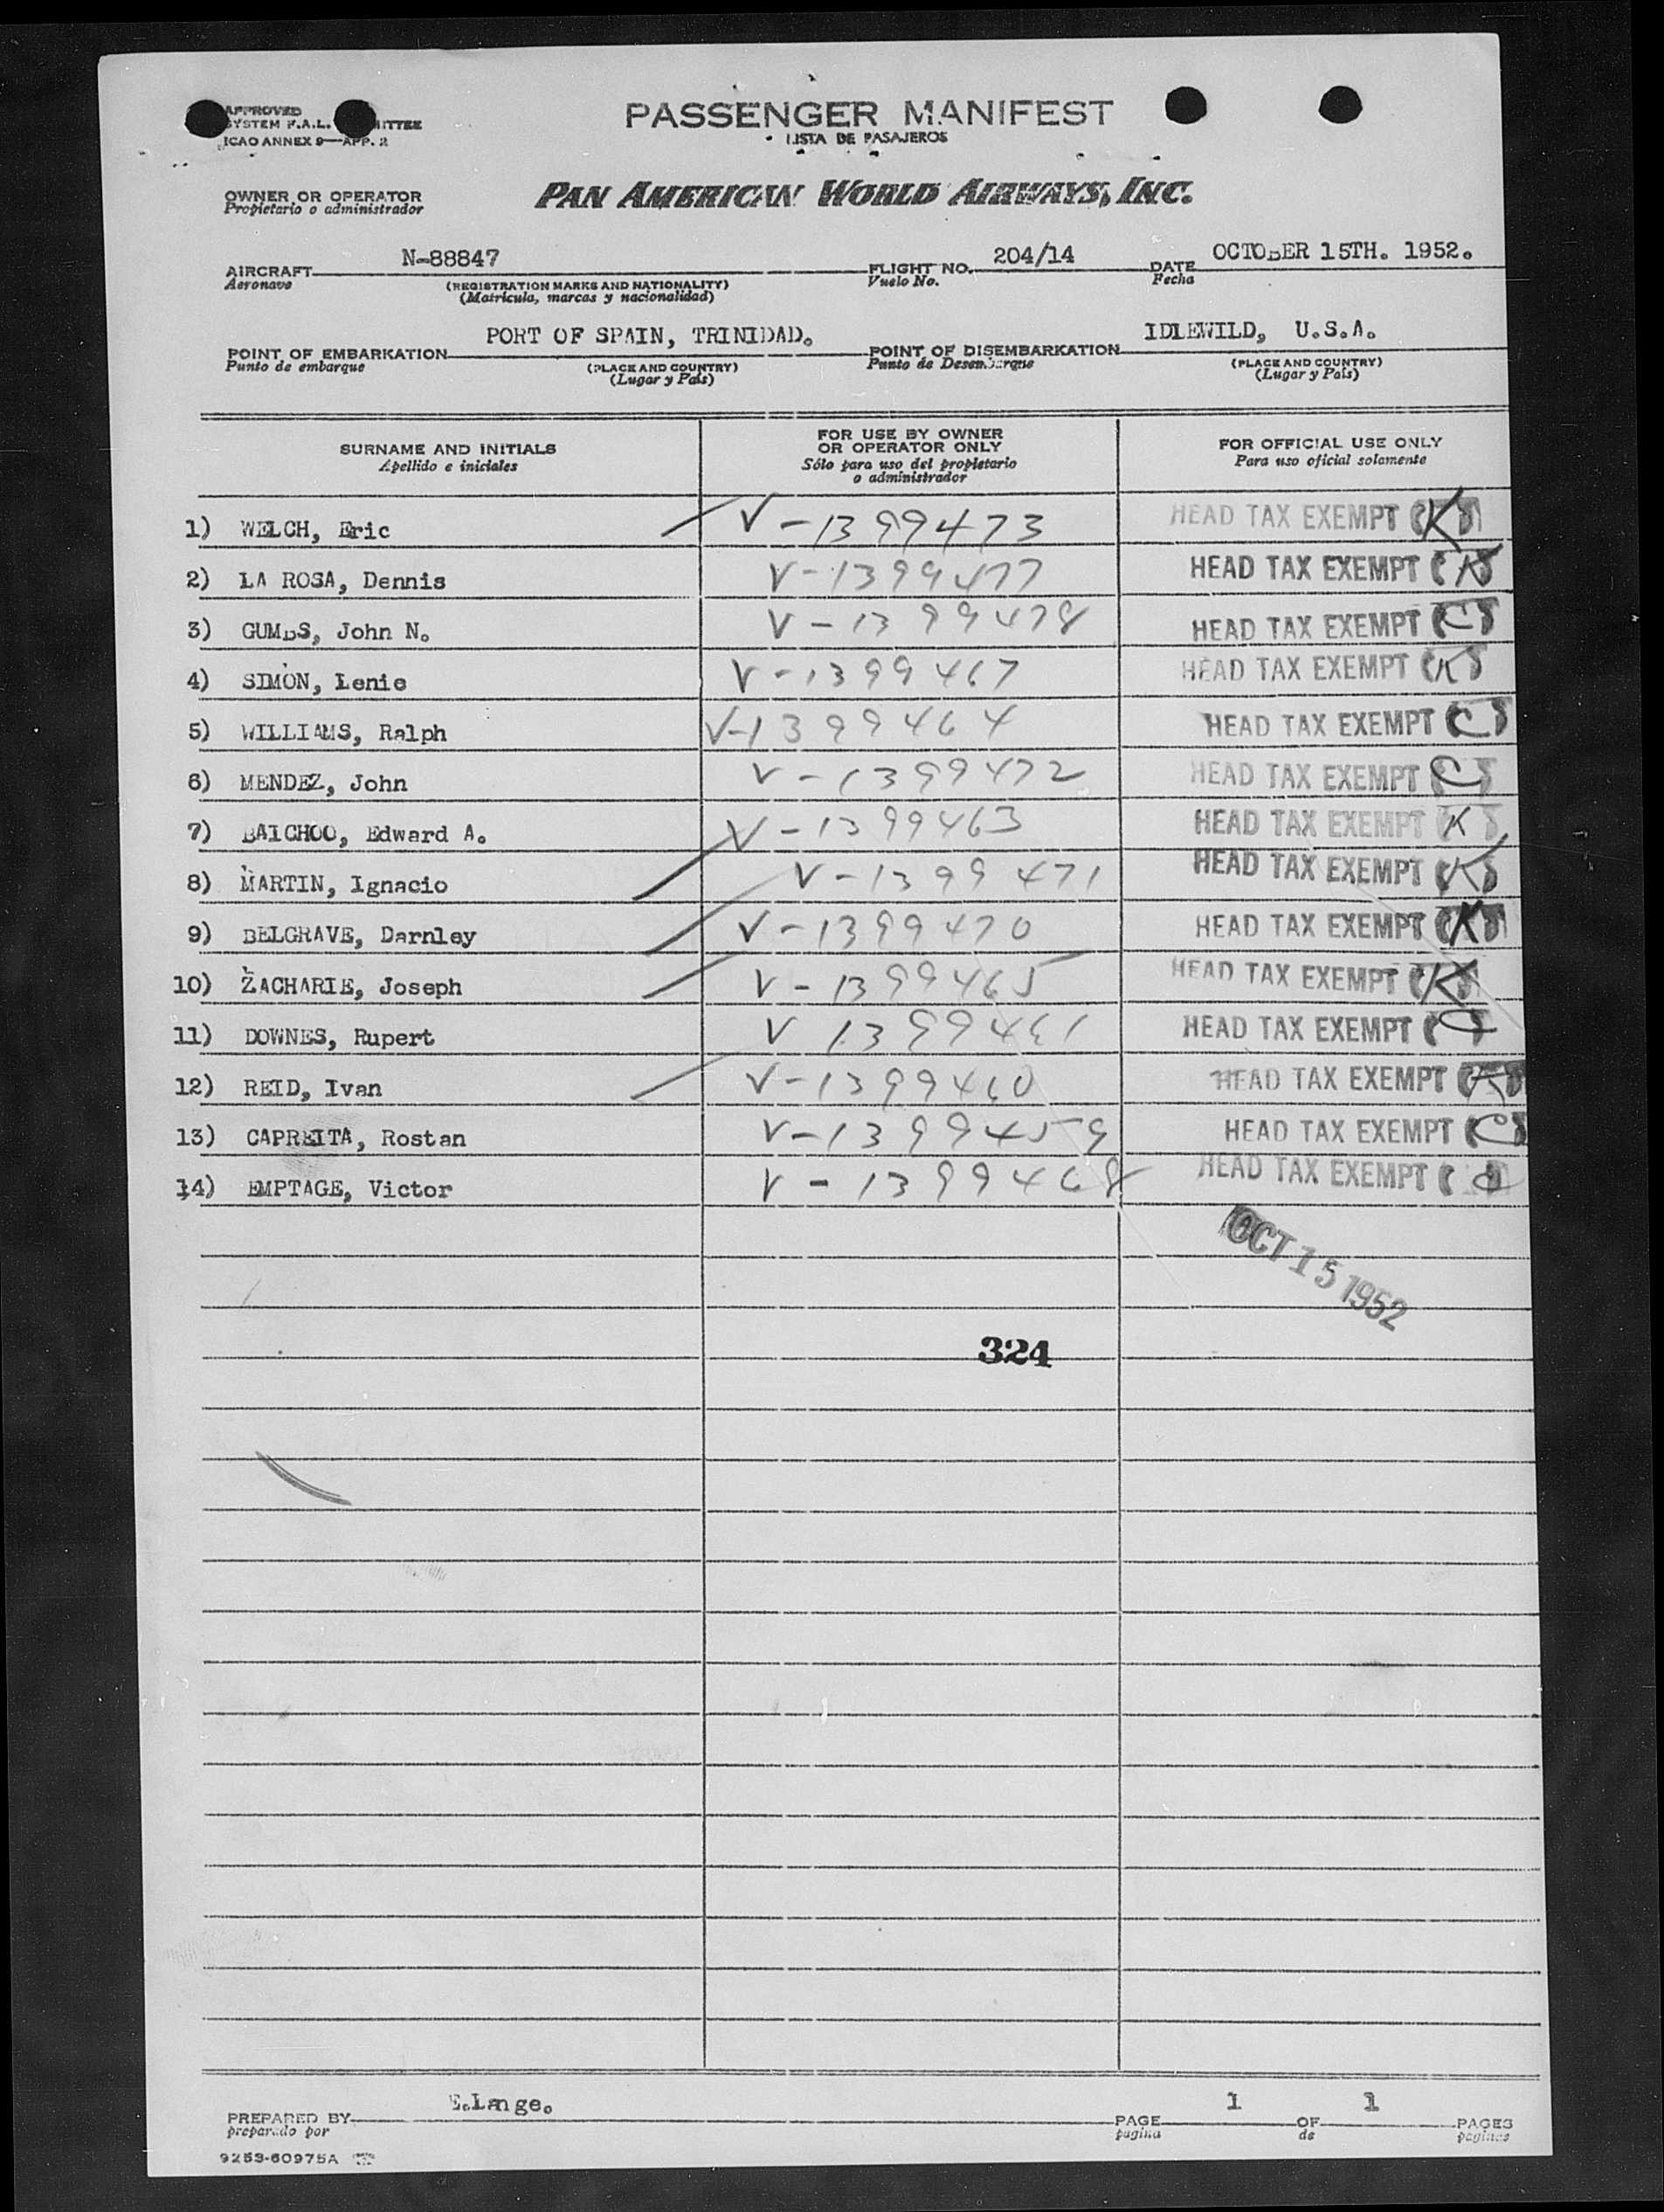 APPROVED
SYSTEM F.A.L.
ICAO ANNEX 9—APP. 2
PASSENGER MANIFEST
LISTA DE PASAJEROS
OWNER OR OPERATOR
Propietario o administrador
PAN AMERICAN WORLD AIRWAYS, INC.
AIRCRAFT N-88847 FLIGHT NO. 204/14 DATE OCTOBER 15TH. 1952.
Aeronave (REGISTRATION MARKS AND NATIONALITY) Vuelo No. Fecha
(Matrícula, marcas y nacionalidad)
POINT OF EMBARKATION PORT OF SPAIN, TRINIDAD. POINT OF DISEMBARKATION IDLEWILD, U.S.A.
Punto de embarque (PLACE AND COUNTRY) Punto de Desembarque (PLACE AND COUNTRY)
(Lugar y País) (Lugar y País)
SURNAME AND INITIALS FOR USE BY OWNER OR OPERATOR ONLY FOR OFFICIAL USE ONLY
Apellido e iniciales Sólo para uso del propietario o administrador Para uso oficial solamente
1) WELCH, Eric V-1399473 HEAD TAX EXEMPT K
2) LA ROSA, Dennis V-1399477 HEAD TAX EXEMPT K
3) GUMBS, John N. V-1399478 HEAD TAX EXEMPT C
4) SIMON, Lenie V-1399467 HEAD TAX EXEMPT K
5) WILLIAMS, Ralph V-1399464 HEAD TAX EXEMPT C
6) MENDEZ, John V-1399472 HEAD TAX EXEMPT C
7) BAICHOO, Edward A. V-1399463 HEAD TAX EXEMPT K
8) MARTIN, Ignacio V-1399471 HEAD TAX EXEMPT K
9) BELGRAVE, Darnley V-1399470 HEAD TAX EXEMPT K
10) ZACHARIE, Joseph V-1399465 HEAD TAX EXEMPT K
11) DOWNES, Rupert V 1399461 HEAD TAX EXEMPT
12) REID, Ivan V-1399460 HEAD TAX EXEMPT K
13) CAPREITA, Rostan V-1399459 HEAD TAX EXEMPT C
14) EMPTAGE, Victor V-1399468 HEAD TAX EXEMPT
OCT 15 1952
324
PREPARED BY E.Lange. PAGE 1 OF 1 PAGES
preparado por pagina de paginas
9253-60975A